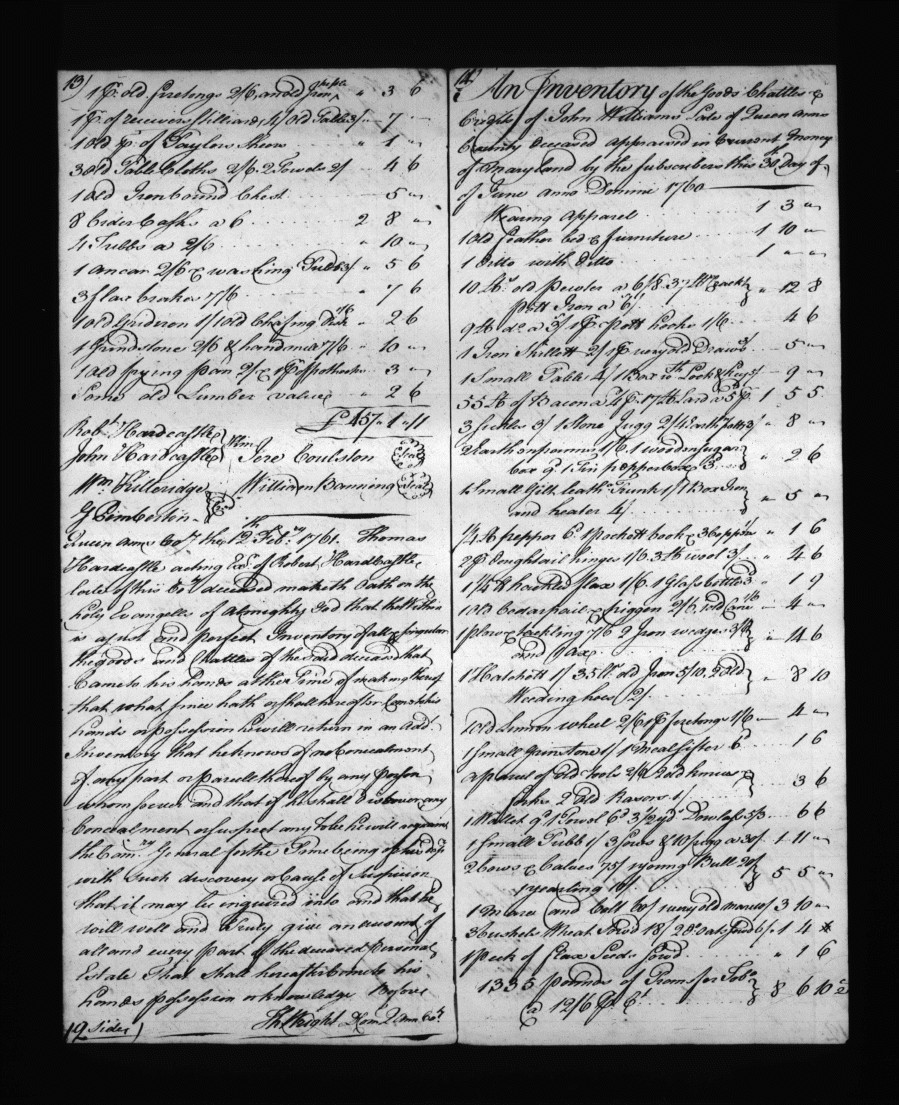 13)
1 pr. old firetongs 2/6, and old Iron " 3 6
1 pr. of receivers Stilliards 4/ Old Table 3/ " 7 "
1 Old pr. of Taylors Shears " 1 "
3 Old Table Cloths 2/6. 2 Towels 2/ 4 6
1 Old Iron bound Chest 5 "
8 Cider Casks a 6 2 8 "
4 Tubbs a 2/6 " 10 "
1 ancor 2/6 & washing Tubb 3/ " 5 6
3 flax brakes 7/6 " 7 6
1 Old Gridiron 1/ 1 Old Chafing Dish 1/6 " 2 6
1 Grindstone 2/6 & handmill 7/6 " 10 "
1 Old frying pan 2/ & 1 pr. of potthooks " 3 "
Some old Lumber value " 2 6
£ 457 " 1 " 11
Robt. Hardcastle
John Hardcastle Kin Jere Coulston Seal
Wm. Kulleridge William Banning Seal
J. Pemberton
Queen Anns Coty. the 12th Feby. 1761. Thomas
Hardcastle acting Exr. of Robert Hardcastle
late of this Coty. deceased maketh Oath on the
holy Evangelles of Almighty God that the Within
is a just and perfect Inventory of all & singular
the goods and Chattles of the said deceased that
Came to his hands at the Time of making thereof
that what since hath or shall hereafter Come to his
hands or possession he will return in an add.
Inventory that he knows of no Concealment
of any part or parcell thereof by any person
whomsoever and that if he shall discover any
Concealment or suspect any to be he will acquaint
the Comry. General for the Time being or his Depy.
with such discovery or Cause of Suspicion
that it may be enquired into and that he
will well and truly give an account of
all and every part of the deceased Personal
Estate that shall hereafter Come to his
hands possession or knowledge Before
Th. Wright Dcom. Q. Ann Coty.
(9 Sides)
14)
An Inventory of the Goods Chattles &
Credits of John Williams Late of Queen Anns
County deceased appraised in Current money
of Maryland by the subscribers this 30th Day of
of June anno Domini 1760
Waring Apparel 1 3 "
1 Old feather bed & furniture 1 10 "
1 Ditto with Ditto 1 " "
10 lbs. old pewter a 6/8. 37 lb.
Pott Iron a " 12 8
9 lb do. a 3/ 1 pr. pott hooks 1/6 4 6
1 Iron Skillett 2/ 1 pr. very old Drawrs 5 "
1 Small Table 4/ 1 Box wth. Lock & key 5/ 9 "
55 lb of Bacon a pr. 17 lb Lard a 5 1 5 5
3 sickles 3/ 1 stone Jugg 2/ 4 earth potts 3/ " 8 "
2 Earthen pans 1/6. 1 wooden sugar
box 9d. 1 Tin pepper box 3 " 2 6
1 Small Gilt leathr. Trunk 1/ 1 Box Iron
and heater 4/ " 5 "
1/4 lb pepper 6d. 1 pockett book & " 1 6
2 pr. Doughtail hinges 1/6. 3 lb wool 3/ " 4 6
1 1/4 lb hackled flax 1/6. 1 Glass bottle 3 " 1 9
1 Old Cedar pail & piggon 2/6. 1 old Cane 1/6 " 4 "
1 plow & tackling 7/6 2 Iron wedges 3/
and 1 ax " 14 6
1 Hatchett 1/ 35 lb. old Iron 5/10. 2 old
Weeding hoes 2/ " 8 10
1 Old Linnen wheel 2/6 1 pr. firetongs 1/6 4 "
1 Small Grinstone 1/ 1 meal sifter 6d 1 6
a parcel of Old Tools 2/ 2 old knives &
forks 2 Old Rasors 1/ 3 6
1 Wallet 9d. 1 Towel 6d. 3 1/2 yds. Dowlass 5/3 6 6
1 Small Tubb 1/ 3 sows & 10 piggs a 30/ 1 11 "
2 Cows & Calves 75/ 1 young Bull 20/
1 yearling 10/ 5 5 "
1 mare and Colt 60/ 1 very old mare 10/ 3 10 "
3 bushels Wheat Sewd 18/ 2 Do. Oats Sewd 6/ 1 4 *
1 Peck of flax Seed Sowd " 1 6
1335 pounds of Transfer Tobo.
a 12/6 pr. Ct. 8 6 10 1/2